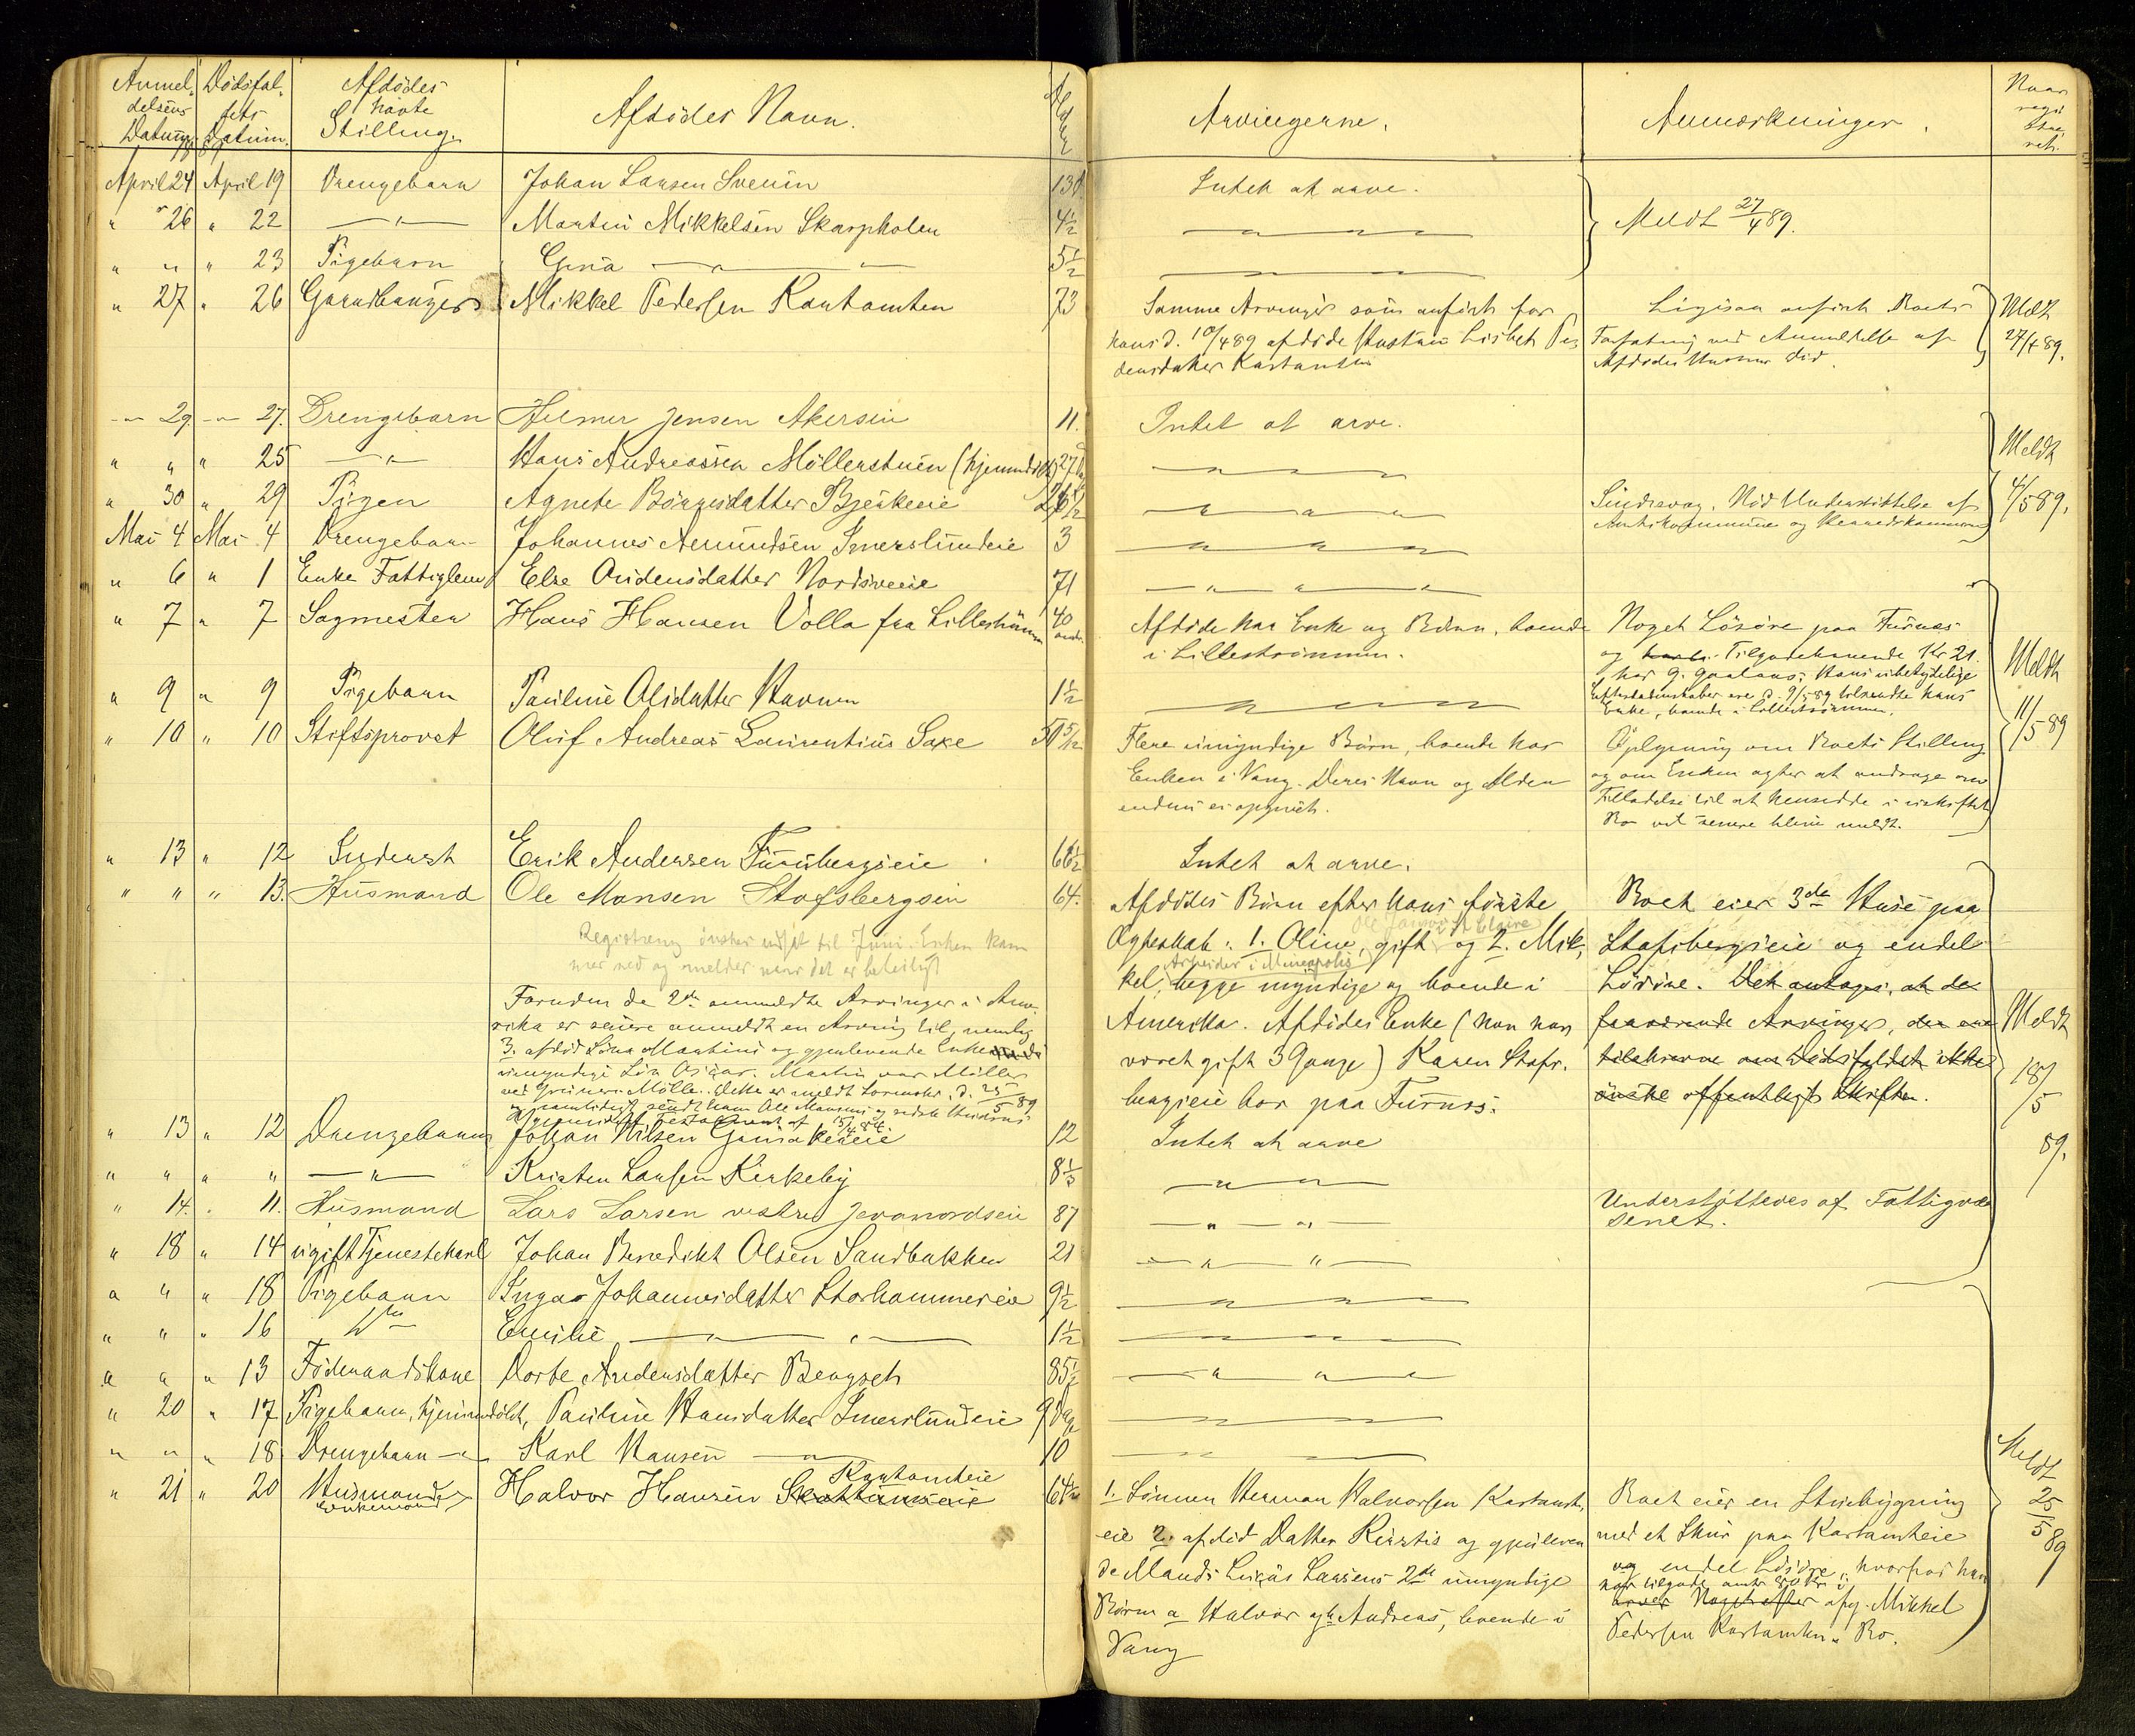 Anmel- Dødsfal- Afdødes Alder
delsens lets havte Afdødes Navn. Arvingerne. Anmærkninger. Naar
Datum. Datum. Stilling.
April 24 April 19 Drengebarn Johan Larsen Sveum 13 Intet at arve.
" 26 " 22 —"— Martin Mikkelsen Skarpholen 4½ — " — " — " — Meldt 27/4 89.
" " " 23 Pigebarn Gina —"— " — 5½
" 27 " 26 Gaardbruger Mikkel Pedersen Kartomten 73 Samme Arvinger som anført for Ligesaa anført Boets Meldt
hans d. 10/4 89 afdøde Hustru Lisbet Pe- Forfatning ved Anmeldelse af 27/4 89.
dersdatter Afdødes Hustrus Død.
— " 29 — " 27. Drengebarn Helmer Jensen Akersein 11. Intet at arve.
" " " 25 —"— Hans Andreassen Möllerstuen (hjemmedøbt) 27 — " — " — " Meldt
" 30 " 29 Pigen Agnete 26½ — " — " — " Sindssvag. Nød Understøttelse af 4/5 89.
Mai 4 Mai 4 Drengebarn Johannes Amundsen Smerslundeie 3 — " — " — " Amtskommune og Herredskommune
" 6 " 1 Enke Fattiglem Else Audensdatter Nordsveeie 71 — " — " — "
" 7 " 7 Sagmester Hans Hansen Volla fra Lillestrømmen 40 Afdøde har Enke og Børn, boende Noget Løsøre paa Furnes
i Lillestrømmen. og Tilgodehavende Kr 21. Meldt
hos G. Gaalaas; Hans ubetydelige
" 9 " 9 Pigebarn Pauline Olsdatter Stavum 1½ — " — " — " Efterladenskaber ere d. 9/5 89 tilsendte hans
Enke, boende i Lillestrømmen. 11/5 89
" 10 " 10 Stiftsprovst Oluf Andreas Laurentius Saxe 50 5/12 Flere umyndige Børn, boende hos Oplysning om Boets Stilling
Enken i Vang. Deres Navn og Alder og om Enken agter at andrage om
endnu ei opgivet. Tilladelse til at hensidde i uskiftet
Bo vil senere blive meldt.
" 13 " 12 Inderst Erik Andersen Furubergseie 66½ Intet at arve.
" " " 13. Husmand Ole Monsen Stafsbergseie 64. Afdødes Børn efter hans første Boet eier 3de Huse paa
Registrering ønskes udsat til Juni. Enken kom-
mer ned og melder naar det er beleiligt
Ægteskab: 1. Oline, gift og 2. Mik- Stafsbergseie og endel
Arbeider i Mineapolis
kel, begge myndige og boende i Løsøre. Det antages, at de
Foruden de 2de anmeldte Arvinger i Ame-
rika er senere anmeldt en Arving til, nemlig
Amerika. Afdødes Enke (han har fraværende Arvinger, der ere Meldt
3. afdød Søn Martins og gjenlevende Enkes
umyndige Søn Oscar. Martin var Møller været gift 3 Gange) Karen Stafs- tilskrevne om Dødsfaldet ikke
ved Grüners Mølle. Dette er meldt Sorenskr. d. 25/5 89 bergseie bor paa Furnes. ønske offentligt Skifte. 18/5 89.
" 13 " 12 Drengebarn Johan Nilsen 12 Intet at arve
" " " " —"— Kristen Larsen Kirkeby 8⅓ — " — " —
" 14. " 11. Husmand Lars Larsen vestre Jevanordseie 87 — " — " — Understøttedes af Fattigvæ-
senet.
" 18 " 14 ugift Tjenestekarl Johan Benedikt Olsen Sandbakken 21 — " — " —
" " " 18 Pigebarn Inga Johannesdatter Storhammereie 9½ — " — " —
" " " 16 Do Emilie —"— " — 1½
" " " 13 Føderaadskone Dorte Andersdatter Bergset 85½ — " — " — "
" 20 " 17 Pigebarn, hjemmedøbt, Pauline Hansdatter Smerslundeie 9 Dage
" " " 18 Drengebarn —"— Karl Hansen —"— 10
" 21 " 20 Husmand Enkemand Halvor Hansen Kartomteie 64 1. Sønnen Herman Halvorsen Kartomt- Boet eier en Stuebygning Meldt
eie 2. afdød Datter Kjerstis og gjenleven- med et Skur paa Kartomteie 25/5 89
de Mands Lukas Larsens 2de umyndige og endel Løsøre, hvorhos han
har tilgode
Børn a Halvor og b Andreas, boende i afg. Mikkel
Vang Pedersen Kartomten's Bo.